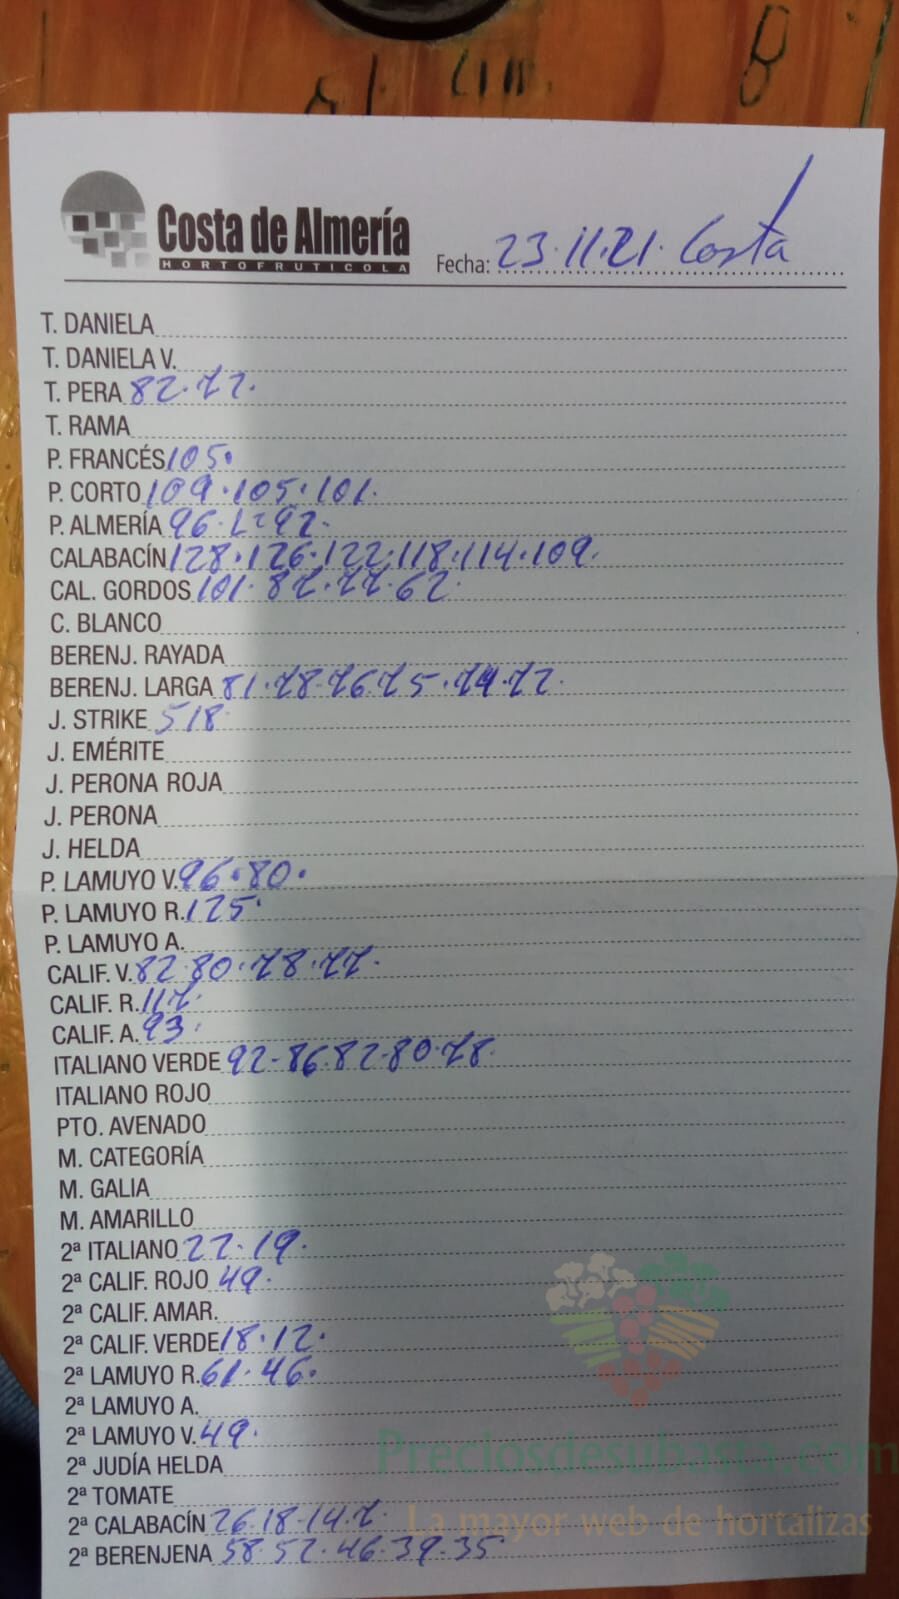 Costa de Almería
HORTOFRUTICOLA
Fecha: 23.11.21. Costa
T. DANIELA
T. DANIELA V.
T. PERA 82.72.
T. RAMA
P. FRANCÉS 105.
P. CORTO 109.105.101.
P. ALMERÍA 96.
CALABACÍN 128.126.122.118.114.109.
CAL. GORDOS 101.87.77.62.
C. BLANCO
BERENJ. RAYADA
BERENJ. LARGA 81.78.76.75.74.72.
J. STRIKE 518
J. EMÉRITE
J. PERONA ROJA
J. PERONA
J. HELDA
P. LAMUYO V. 96.80.
P. LAMUYO R. 125.
P. LAMUYO A.
CALIF. V. 82.80.78.77.
CALIF. R. 117.
CALIF. A. 93.
ITALIANO VERDE 92-86.82-80.78.
ITALIANO ROJO
PTO. AVENADO
M. CATEGORÍA
M. GALIA
M. AMARILLO
2ª ITALIANO 22.19.
2ª CALIF. ROJO 49.
2ª CALIF. AMAR.
2ª CALIF. VERDE 18.12.
2ª LAMUYO R. 61.46.
2ª LAMUYO A.
2ª LAMUYO V. 49.
Preciosdesubasta.com
2ª JUDÍA HELDA
2ª TOMATE
2ª CALABACÍN 26.18-14.7.
La mayor web de hortalizas
2ª BERENJENA 58.52.46.39.35.